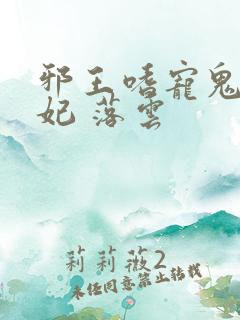 邪王嗜寵鬼
妃 落雲
莉莉薇2
未经同意禁止转载